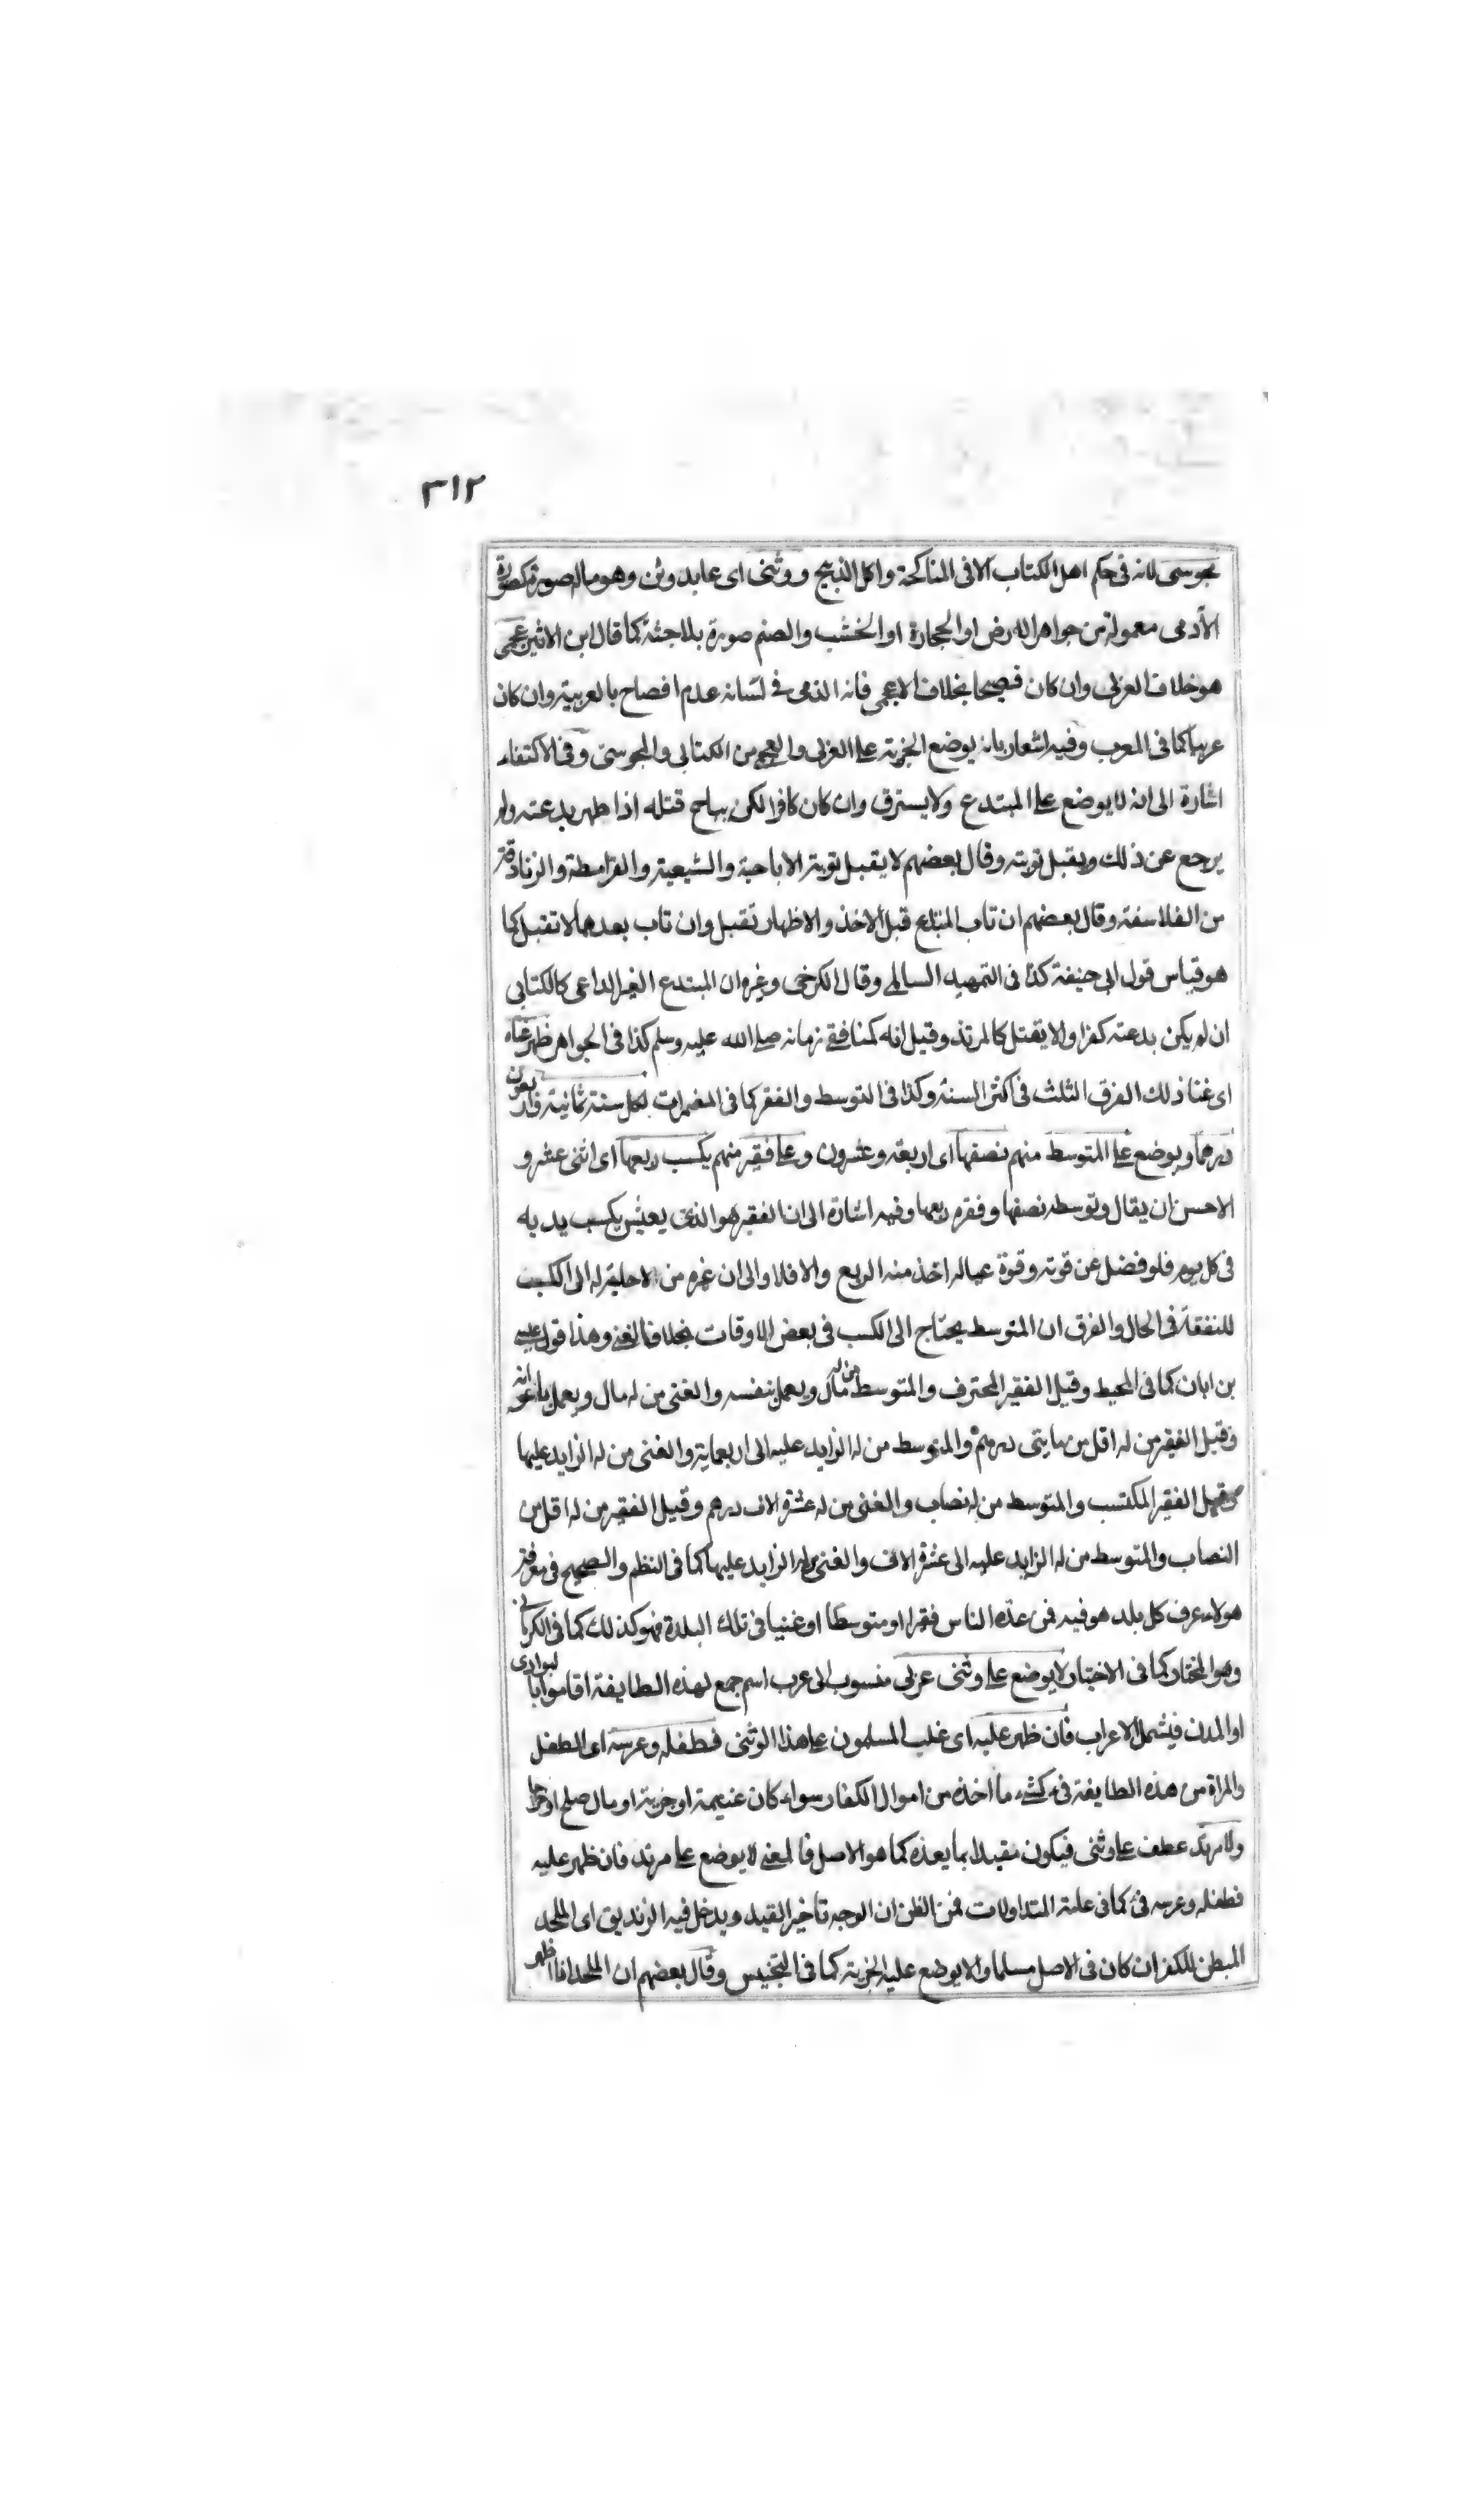 ٣١٢
مجوسى لانه فى حكم اهل الكتاب الا فى المناكحة واكل الذبيح ووثنى اى عابد وثن وهو ماله صورة كصورة
الآدمى معمولة من جواهر الارض او الحجارة او الخشب والصنم صورة بلا جثة كما قال ابن الاثير عجمى
هو خلاف العربى وان كان فصيحا بخلاف الاعجمى فانه الذى فى لسانه عدم افصاح بالعربية وان كان
عربيا كما فى المعرب وفيه اشعار بانه يوضع الجزية على العربى والعجمى من الكتابى والمجوسى وفى الاكتفاء
اشارة الى انه لا يوضع على المبتدع ولا يسترق وان كان كافرا لكن يباح قتله اذا ظهر بدعته ولم
يرجع عن ذلك ويقبل توبته وقال بعضهم لا يقبل توبة الاباحية والشيعية والقرامطة والزنادقة
من الفلاسفة وقال بعضهم ان تاب المبتدع قبل الاخذ والاظهار تقبل وان تاب بعدهما لا تقبل كما
هو قياس قول ابى حنيفة كذا فى التمهيد السالمى وقال الكرخى وغيره ان المبتدع الغير الداعى كالكتابى
ان لم يكن بدعته كفرا والا يقتل كالمرتد وقيل انه كمنافقى زمانه صلى الله عليه وسلم كذا فى الجواهر ظهر غناه
اى غنا ذلك الفرق الثلث فى اكثر السنة وكذا فى التوسط والفقر كما فى المضمرات لكل سنة ثمانية واربعون
درهما ويوضع على المتوسط منهم نصفها اى اربعة وعشرون وعلى فقير منهم يكسب ربعها اى اثنى عشر و
الاحسن ان يقال وتوسطه نصفها وفقره ربعها وفيه اشارة الى ان الفقير هو الذى يعيش بكسب يديه
فى كل يوم فلو فضل عن قوته وقوة عياله اخذ منه الربع والا فلا والى ان غيره من لا حاجة له الى الكسب
للنفقة فى الحال والفرق ان المتوسط يحتاج الى الكسب فى بعض الاوقات بخلاف الغنى وهذا قول عيسى
بن ابان كما فى المحيط وقيل الفقير المحترف والمتوسط من له مال ويعمل بنفسه والغنى من له مال ويعمل باعوانه
وقيل الفقير من له اقل من مايتى درهم والمتوسط من له الزايد عليه الى اربعماية والغنى من له الزايد عليها
وقيل الفقير المكتسب والمتوسط من له نصاب والغنى من له عشرة الاف درهم وقيل الفقير من له اقل من
النصاب والمتوسط من له الزايد عليه الى عشرة الاف والغنى من له الزايد عليها كما فى النظم والصحيح فى معرفة
هولاء عرف كل بلد هو فيه فمن عده الناس فقيرا او متوسطا او غنيا فى تلك البلدة فهو كذلك كما فى الكرمانى
وهو المختار كما فى الاختيار لا يوضع على وثنى عربى منسوب الى عرب اسم جمع لهذه الطايفة اقاموا بالبوادى
او المدن فيشمل الاعراب فان ظهر عليه اى غلب المسلمون على هذا الوثنى فطفله وعرسه اى الطفل
والمراة من هذه الطايفة فىء كشىء ما اخذه من اموال الكفار سواء كان غنيمة او جزية او مال صلح او خراجا
ولا مرتد عطف على وثنى فيكون مقيدا بما يعده كما هو الاصل فالمعنى لا يوضع على مرتد فان ظهر عليه
فطفله وعرسه فىء كما فى عامة المتداولات فمن الظن ان الوجه تاخير القيد ويدخل فيه الزنديق اى الملحد
المبطن للكفر ان كان فى الاصل مسلما والا يوضع عليه الجزية كما فى التجنيس وقال بعضهم ان الملحد اذا ظهر